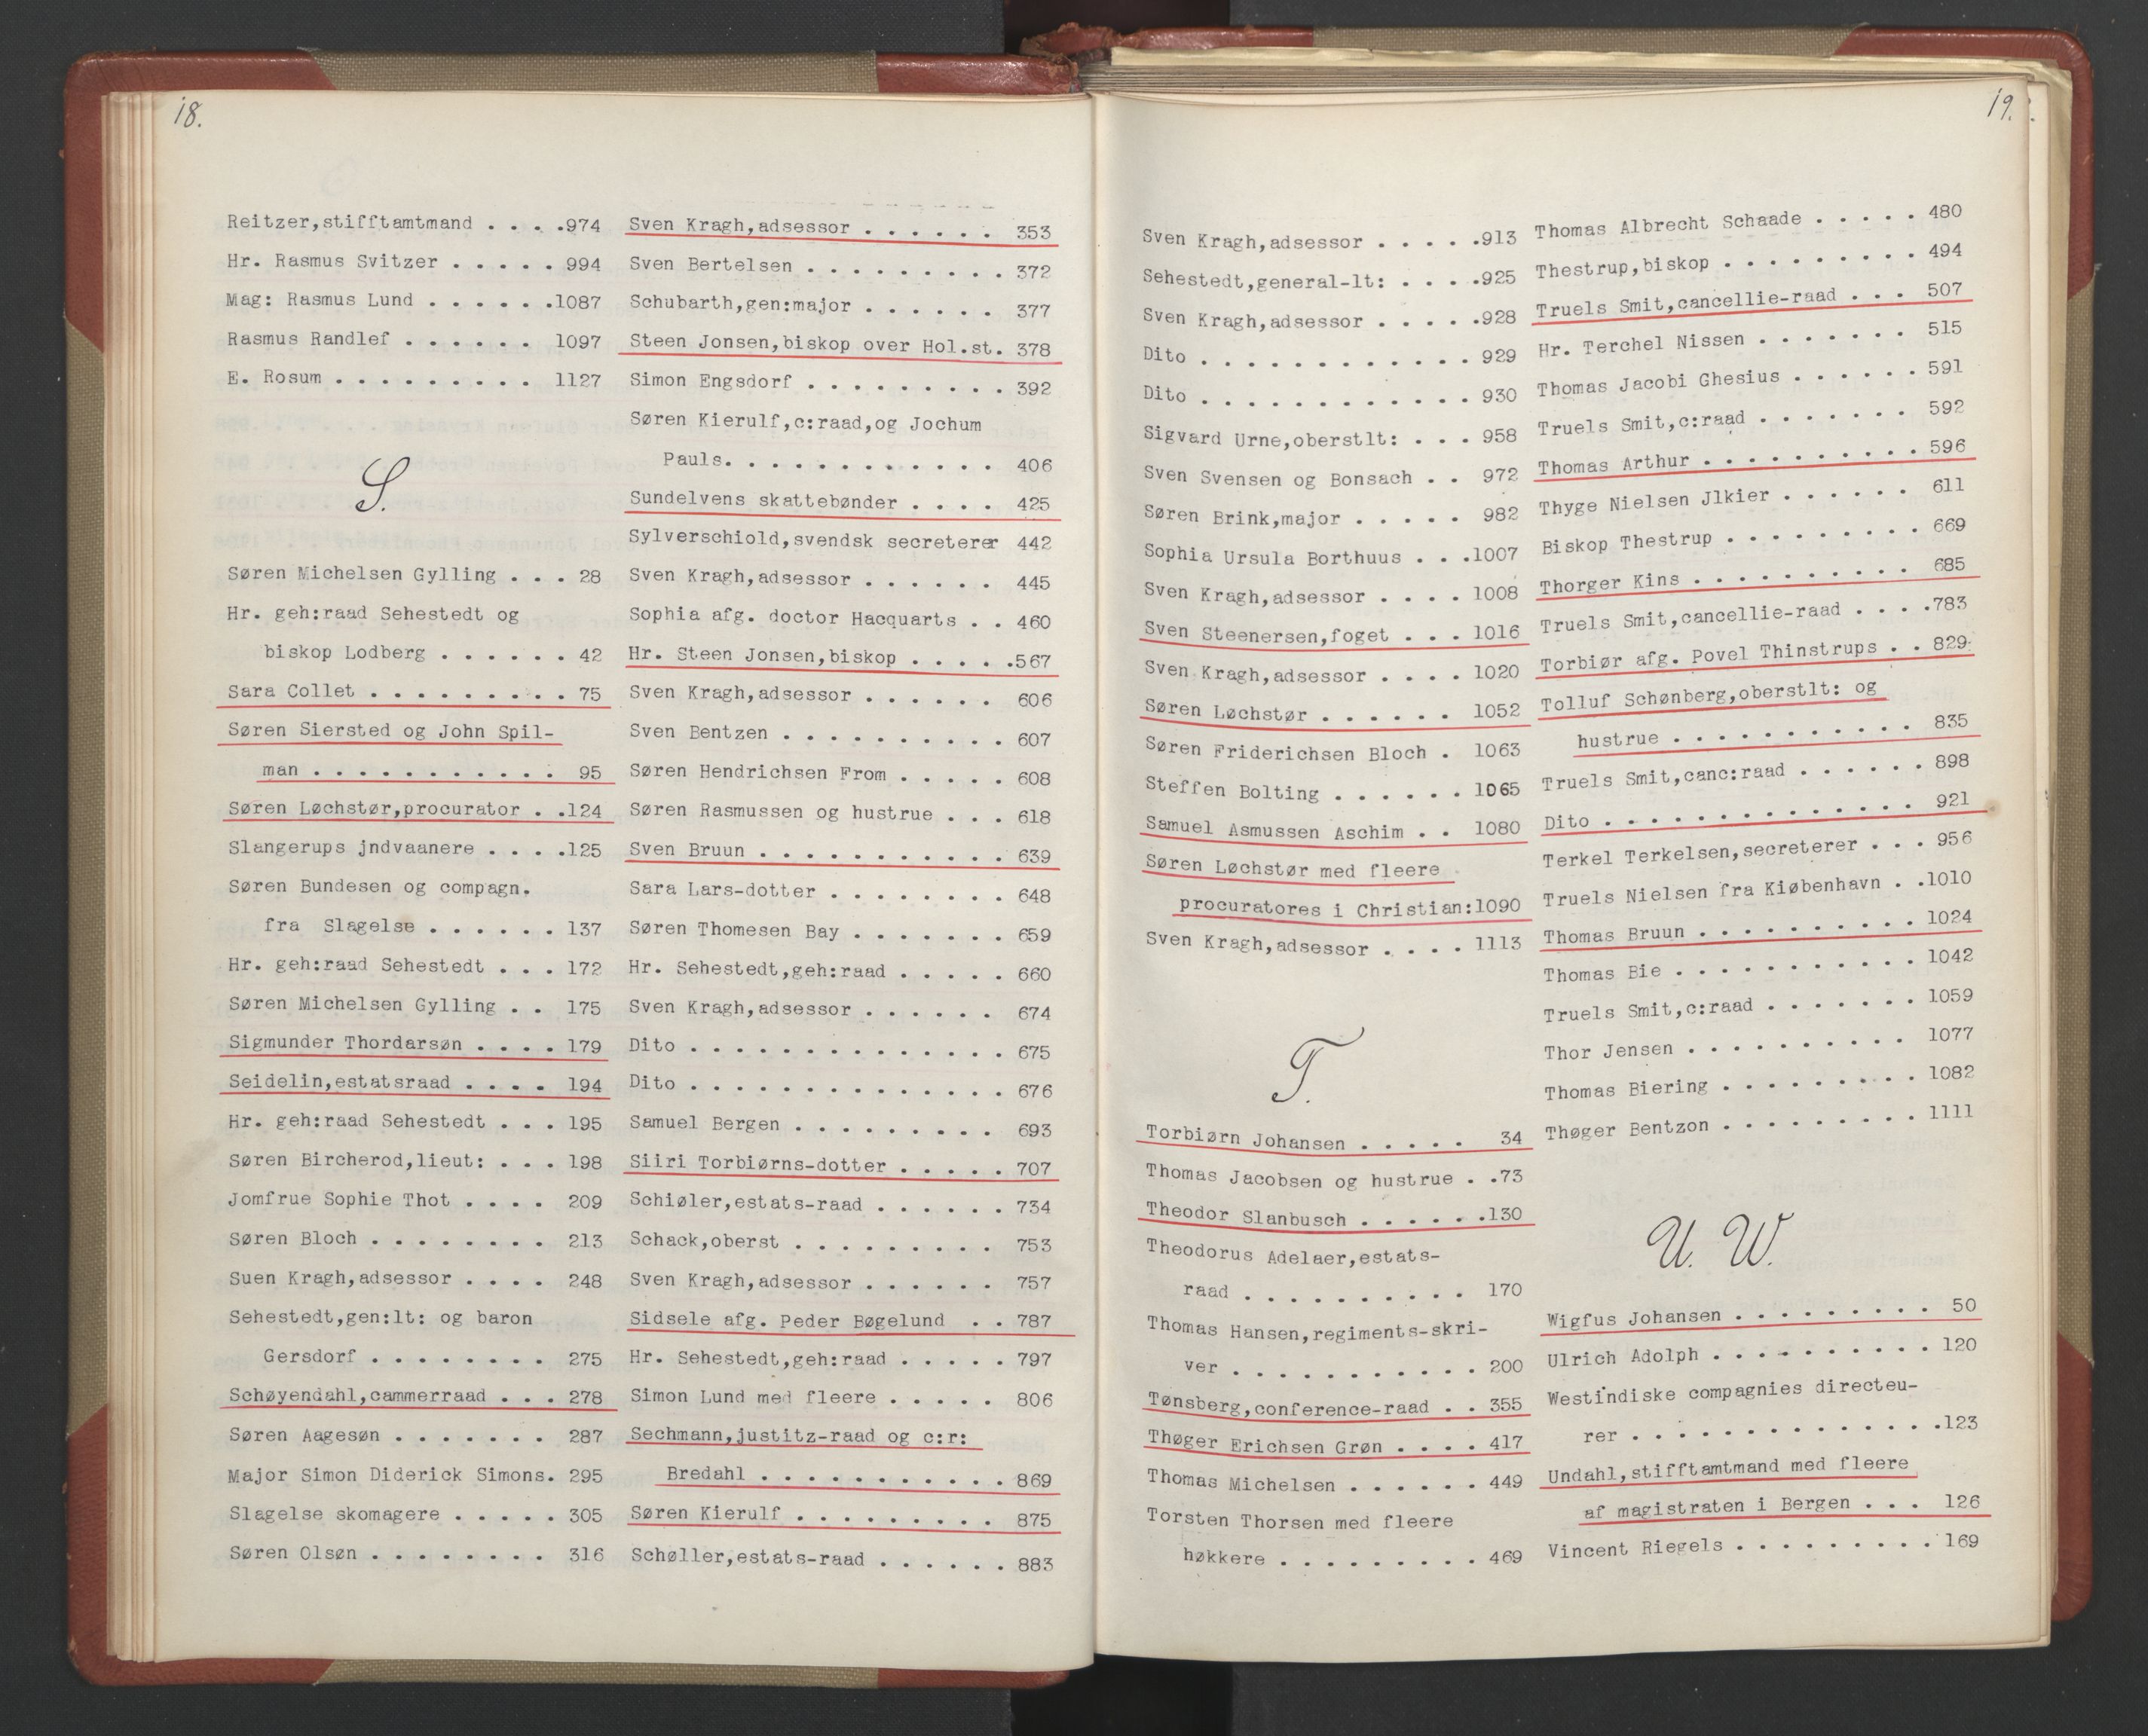 18.
Reitzer,stifftamtmand . . . .974
Hr. Rasmus Svitzer . . . . . 994
Mag: Rasmus Lund . . . . . .1087
Rasmus Randlef . . . . . . 1097
E. Rosum . . . . . . . . . 1127
S.
Søren Michelsen Gylling . . . 28
Hr. geh:raad Sehestedt og
biskop Lodberg . . . . . . 42
Sara Collet . . . . . . . . . 75
Søren Siersted og John Spil-
man . . . . . . . . . . . 95
Søren Løchstør,procurator . .124
Slangerups jndvaanere . . . .125
Søren Bundesen og compagn.
fra Slagelse . . . . . . 137
Hr. geh:raad Sehestedt . . . 172
Søren Michelsen Gylling . . 175
Sigmunder Thordarsøn . . . . 179
Seidelin,estatsraad . . . . 194
Hr. geh:raad Sehestedt . . . 195
Søren Bircherod,lieut: . . . 198
Jomfrue Sophie Thot . . . . 209
Søren Bloch . . . . . . . . 213
Suen Kragh,adsessor . . . . 248
Sehestedt,gen:lt: og baron
Gersdorf . . . . . . . . 275
Schøyendahl,cammerraad . . . 278
Søren Aagesøn . . . . . . . 287
Major Simon Diderick Simons. 295
Slagelse skomagere . . . . . 305
Søren Olsøn . . . . . . . . 316
Sven Kragh,adsessor . . . . . . 353
Sven Bertelsen . . . . . . . . . 372
Schubarth,gen:major . . . . . . 377
Steen Jonsen,biskop over Hol.st. 378
Simon Engsdorf . . . . . . . . . 392
Søren Kierulf,c:raad,og Jochum
Pauls. . . . . . . . . . . . 406
Sundelvens skattebønder . . . . 425
Sylverschiold,svendsk secreterer 442
Sven Kragh,adsessor . . . . . . 445
Sophia afg. doctor Hacquarts . . 460
Hr. Steen Jonsen,biskop . . . . .567
Sven Kragh,adsessor . . . . . . 606
Sven Bentzen . . . . . . . . . . 607
Søren Hendrichsen From . . . . . 608
Søren Rasmussen og hustrue . . . 618
Sven Bruun . . . . . . . . . . . 639
Sara Lars-dotter . . . . . . . . 648
Søren Thomesen Bay . . . . . . . 659
Hr. Sehestedt,geh:raad . . . . . 660
Sven Kragh,adsessor . . . . . . 674
Dito . . . . . . . . . . . . . . 675
Dito . . . . . . . . . . . . . . 676
Samuel Bergen . . . . . . . . . 693
Siiri Torbiørns-dotter . . . . . 707
Schiøler,estats-raad . . . . . . 734
Schack,oberst . . . . . . . . . 753
Sven Kragh,adsessor . . . . . . 757
Sidsele afg. Peder Bøgelund . . 787
Hr. Sehestedt,geh:raad . . . . . 797
Simon Lund med fleere . . . . . 806
Sechmann,justitz-raad og c:r:
Bredahl . . . . . . . . . . . 869
Søren Kierulf . . . . . . . . . 875
Schøller,estats-raad . . . . . . 883
19.
Sven Kragh,adsessor . . . . .913
Sehestedt,general-lt: . . . .925
Sven Kragh,adsessor . . . . .928
Dito . . . . . . . . . . . . 929
Dito . . . . . . . . . . . . 930
Sigvard Urne,oberstlt: . . . 958
Sven Svensen og Bonsach . . 972
Søren Brink,major . . . . . 982
Sophia Ursula Borthuus . . .1007
Sven Kragh,adsessor . . . . 1008
Sven Steenersen,foget . . . 1016
Sven Kragh,adsessor . . . . 1020
Søren Løchstør . . . . . . 1052
Søren Friderichsen Bloch . 1063
Steffen Bolting . . . . . . 1065
Samuel Asmussen Aschim . . 1080
Søren Løchstør med fleere
procuratores i Christian:1090
Sven Kragh,adsessor . . . . 1113
T.
Torbiørn Johansen . . . . . 34
Thomas Jacobsen og hustrue . .73
Theodor Slanbusch . . . . . .130
Theodorus Adelaer,estats-
raad . . . . . . . . . . 170
Thomas Hansen,regiments-skri-
ver . . . . . . . . . . . 200
Tønsberg,conference-raad . . 355
Thøger Erichsen Grøn . . . . 417
Thomas Michelsen . . . . . . 449
Torsten Thorsen med fleere
høkkere . . . . . . . . . 469
Thomas Albrecht Schaade . . . . . 480
Thestrup,biskop . . . . . . . . . 494
Truels Smit,cancellie-raad . . . 507
Hr. Terchel Nissen . . . . . . . 515
Thomas Jacobi Ghesius . . . . . . 591
Truels Smit,c:raad . . . . . . . 592
Thomas Arthur . . . . . . . . . . 596
Thyge Nielsen Jlkier . . . . . . 611
Biskop Thestrup . . . . . . . . . 669
Thorger Kins . . . . . . . . . . 685
Truels Smit,cancellie-raad . . . .783
Torbiør afg. Povel Thinstrups . . 829
Tolluf Schønberg,oberstlt: og
hustrue . . . . . . . . . . . 835
Truels Smit,canc:raad . . . . . . 898
Dito . . . . . . . . . . . . . . 921
Terkel Terkelsen,secreterer . . . 956
Truels Nielsen fra Kiøbenhavn . .1010
Thomas Bruun . . . . . . . . . . 1024
Thomas Bie . . . . . . . . . . . 1042
Truels Smit,c:raad . . . . . . . 1059
Thor Jensen . . . . . . . . . . 1077
Thomas Biering . . . . . . . . . 1082
Thøger Bentzon . . . . . . . . . 1111
U. W.
Wigfus Johansen . . . . . . . . . 50
Ulrich Adolph . . . . . . . . . . 120
Westindiske compagnies directeu-
rer . . . . . . . . . . . . . .123
Undahl,stifftamtmand med fleere
af magistraten i Bergen . . . 126
Vincent Riegels . . . . . . . . . 169